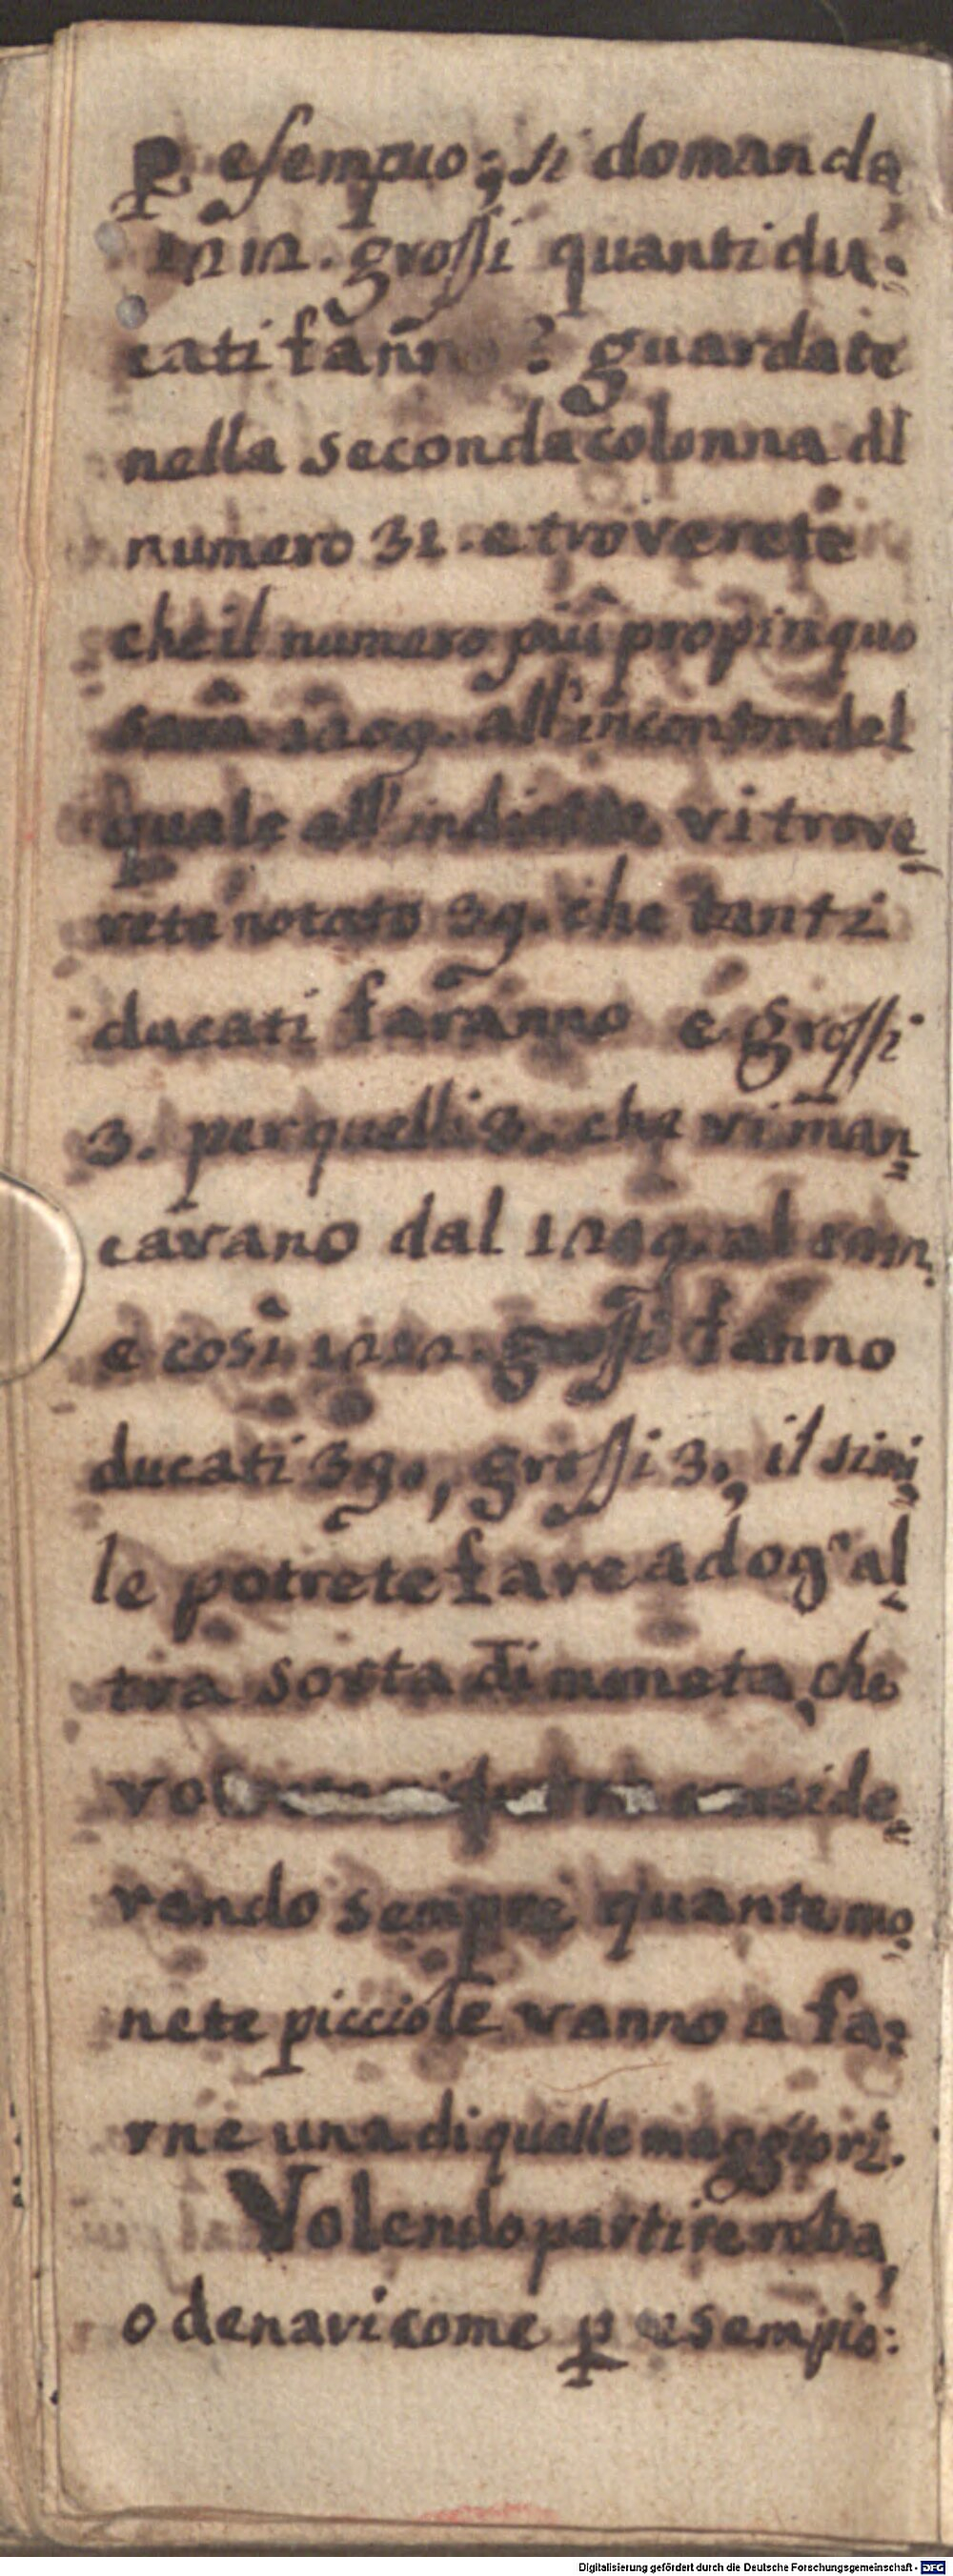 ꝑ esempio; si domanda
1212. grossi quanti du=
cati fanno? guardate
nella seconda colonna dl
numero 31. e troverete
che il numero più propinquo
sarà 1209. all'incontro del
quale all'indietro vi trove
rete notato 39. che tanti
ducati faranno e grossi
3. per quelli 3. che vi man=
cavano dal 1209. al 1212
e così 1212. grossi fanno
ducati 39., grossi 3., il simi=
le potrete fare ad ogni al=
tra sorta di moneta, che
conside=
rendo sempre quante mo=
nete picciole vanno a fa=
rne una di quelle maggiori.
Volendo partire roba,
o denari come ꝑ esempio:
Digitalisierung gefördert durch die Deutsche Forschungsgemeinschaft - DFG